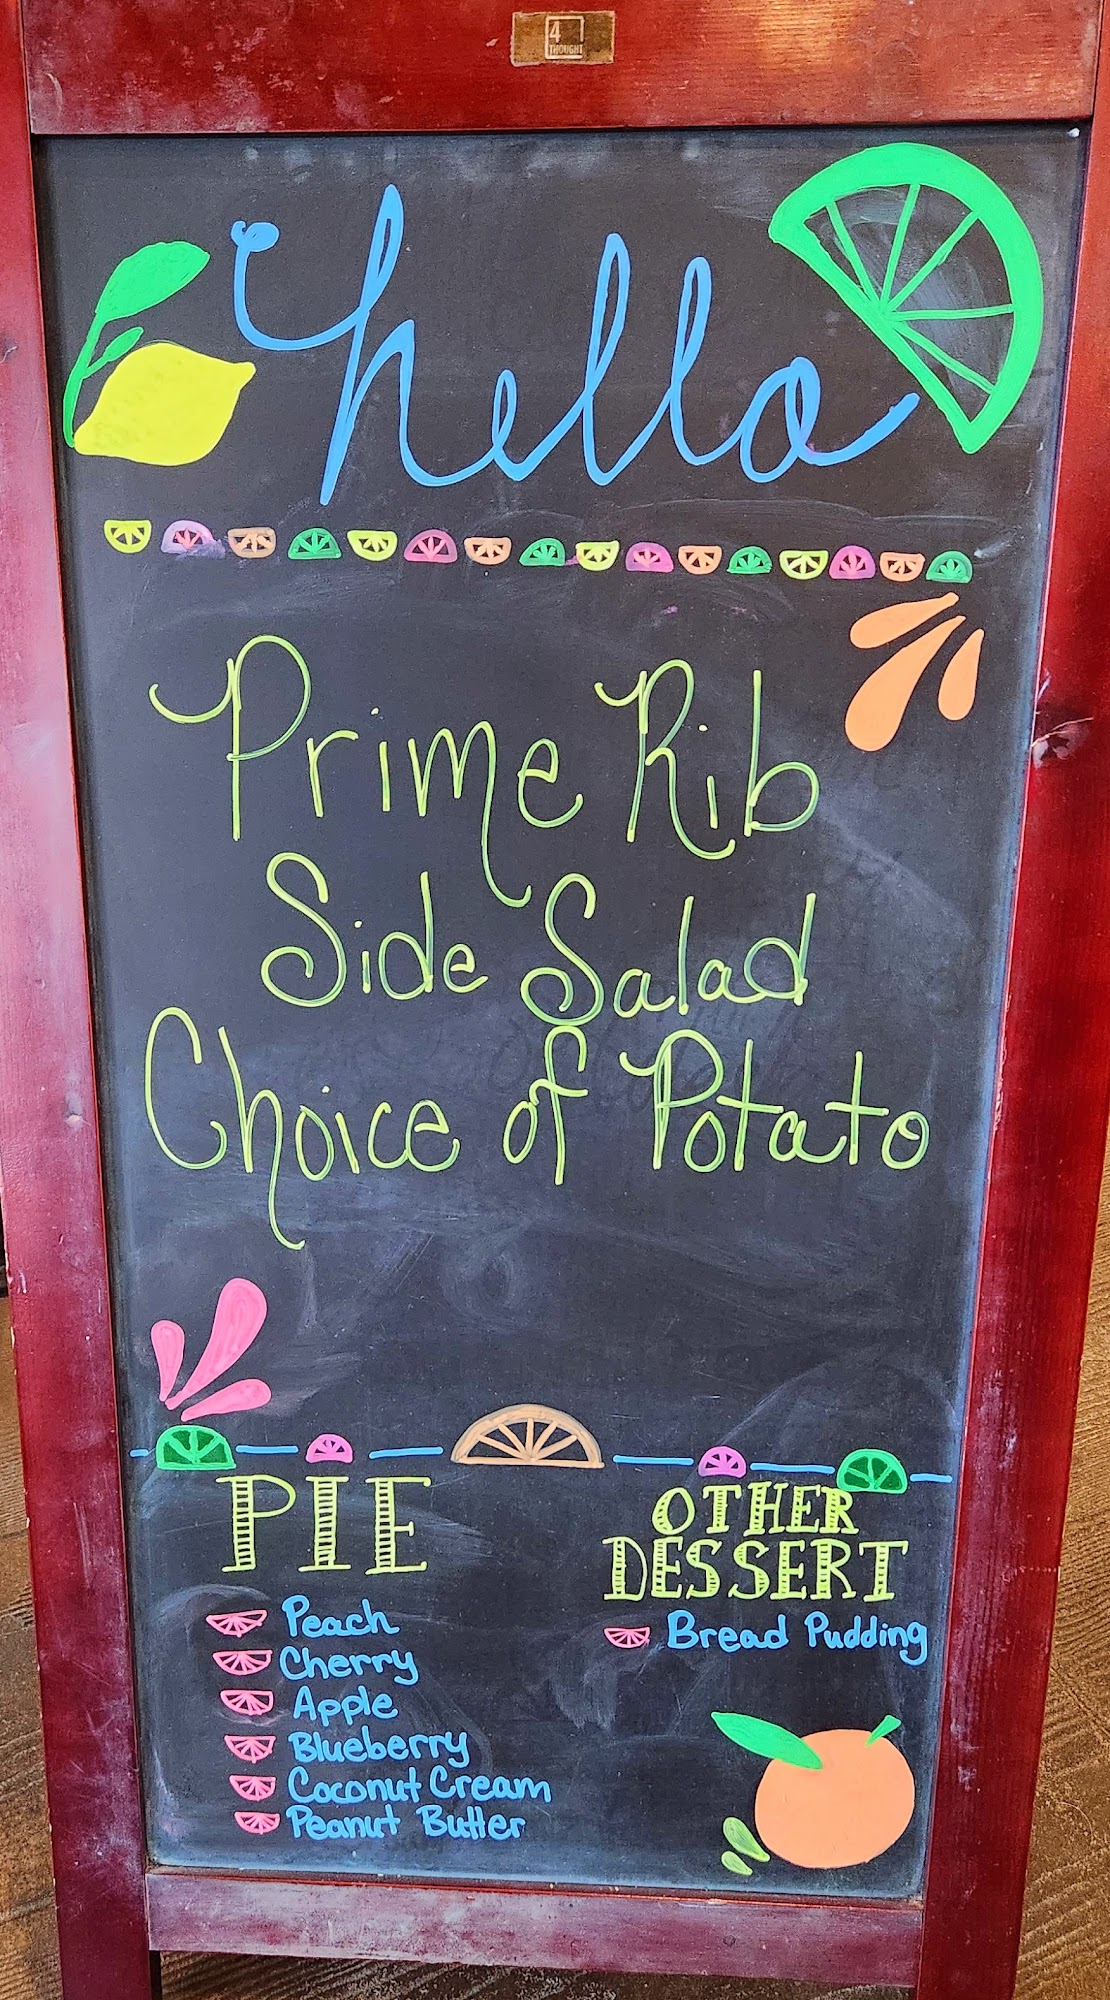 4
THOUGHT
hello
Prime Rib
Side Salad
Choice of Potato
PIE
Peach
Cherry
Apple
Blueberry
Coconut Cream
Peanut Butter
OTHER
DESSERT
Bread Pudding